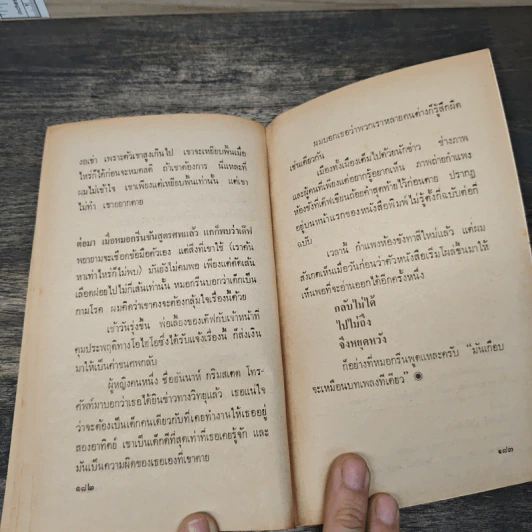 งอเข่า เพราะตัวเขาสูงเกินไป เขาจะเหยียบพื้นเมื่อ
ไหร่ก็ได้ก่อนจะหมดสติ ถ้าเขาต้องการ นี่แหละที่
ผมไม่เข้าใจ เขาเพียงแต่เหยียบพื้นเท่านั้น แต่เขา
ไม่ทำ เขาอยากตาย
ต่อมา เมื่อหมอกรีนชันสูตรศพแล้ว แกก็พบว่าเดฟ
พยายามจะเชือกข้อมือตัวเอง แต่สิ่งที่เขาใช้ (เราค้น
หาเท่าไหร่ก็ไม่พบ) มันยังไม่คมพอ เพียงแต่ตัดเส้น
เลือดฝอยไปไม่กี่เส้นเท่านั้น หมอกรีนบอกว่าเด็กเป็น
กามโรค ผมคิดว่าเขาคงจะกลุ้มใจเรื่องนี้ด้วย
เช้าวันรุ่งขึ้น พ่อเลี้ยงของเดฟกับเจ้าหน้าที่
คุมประพฤติทางโอไฮโอซึ่งได้รับแจ้งเรื่องนี้ ก็ส่งเงิน
มาให้เป็นค่าขนศพกลับ
ผู้หญิงคนหนึ่ง ชื่ออันนาห์ กริมสเตด โทร-
ศัพท์มาบอกว่าเธอได้ยินข่าวทางวิทยุแล้ว เธอแน่ใจ
ว่าจะต้องเป็นเด็กคนเดียวกับที่เคยทำงานให้เธออยู่
สองอาทิตย์ เขาเป็นเด็กดีที่สุดเท่าที่เธอเคยรู้จัก และ
มันเป็นความผิดของเธอเองที่เขาตาย
๑๘๒
ผมบอกเธอว่าพวกเราหลายคนต่างก็รู้สึกผิด
เช่นเดียวกัน
เมืองทั้งเมืองเต็มไปด้วยนักข่าว ช่างภาพ
และผู้คนที่เพียงแต่อยากรู้อยากเห็น ภาพถ่ายกำแพง
ห้องขังที่เดฟเขียนถ้อยคำสุดท้ายไว้ก่อนตาย ปรากฏ
อยู่บนหน้าแรกของหนังสือพิมพ์ไม่รู้ตั้งกี่ฉบับต่อกี่
ฉบับ
เวลานี้ กำแพงห้องขังทาสีใหม่แล้ว แต่ผม
สังเกตเห็นเมื่อวันก่อนว่าตัวหนังสือเริ่มโผล่ขึ้นมาให้
เห็นพอที่จะอ่านออกได้อีกครั้งหนึ่ง
กลับไม่ได้
ไปไม่ถึง
จึงหยุดหวัง
ก็อย่างที่หมอกรีนพูดแหละครับ “มันเกือบ
จะเหมือนบทเพลงทีเดียว”
๑๘๓